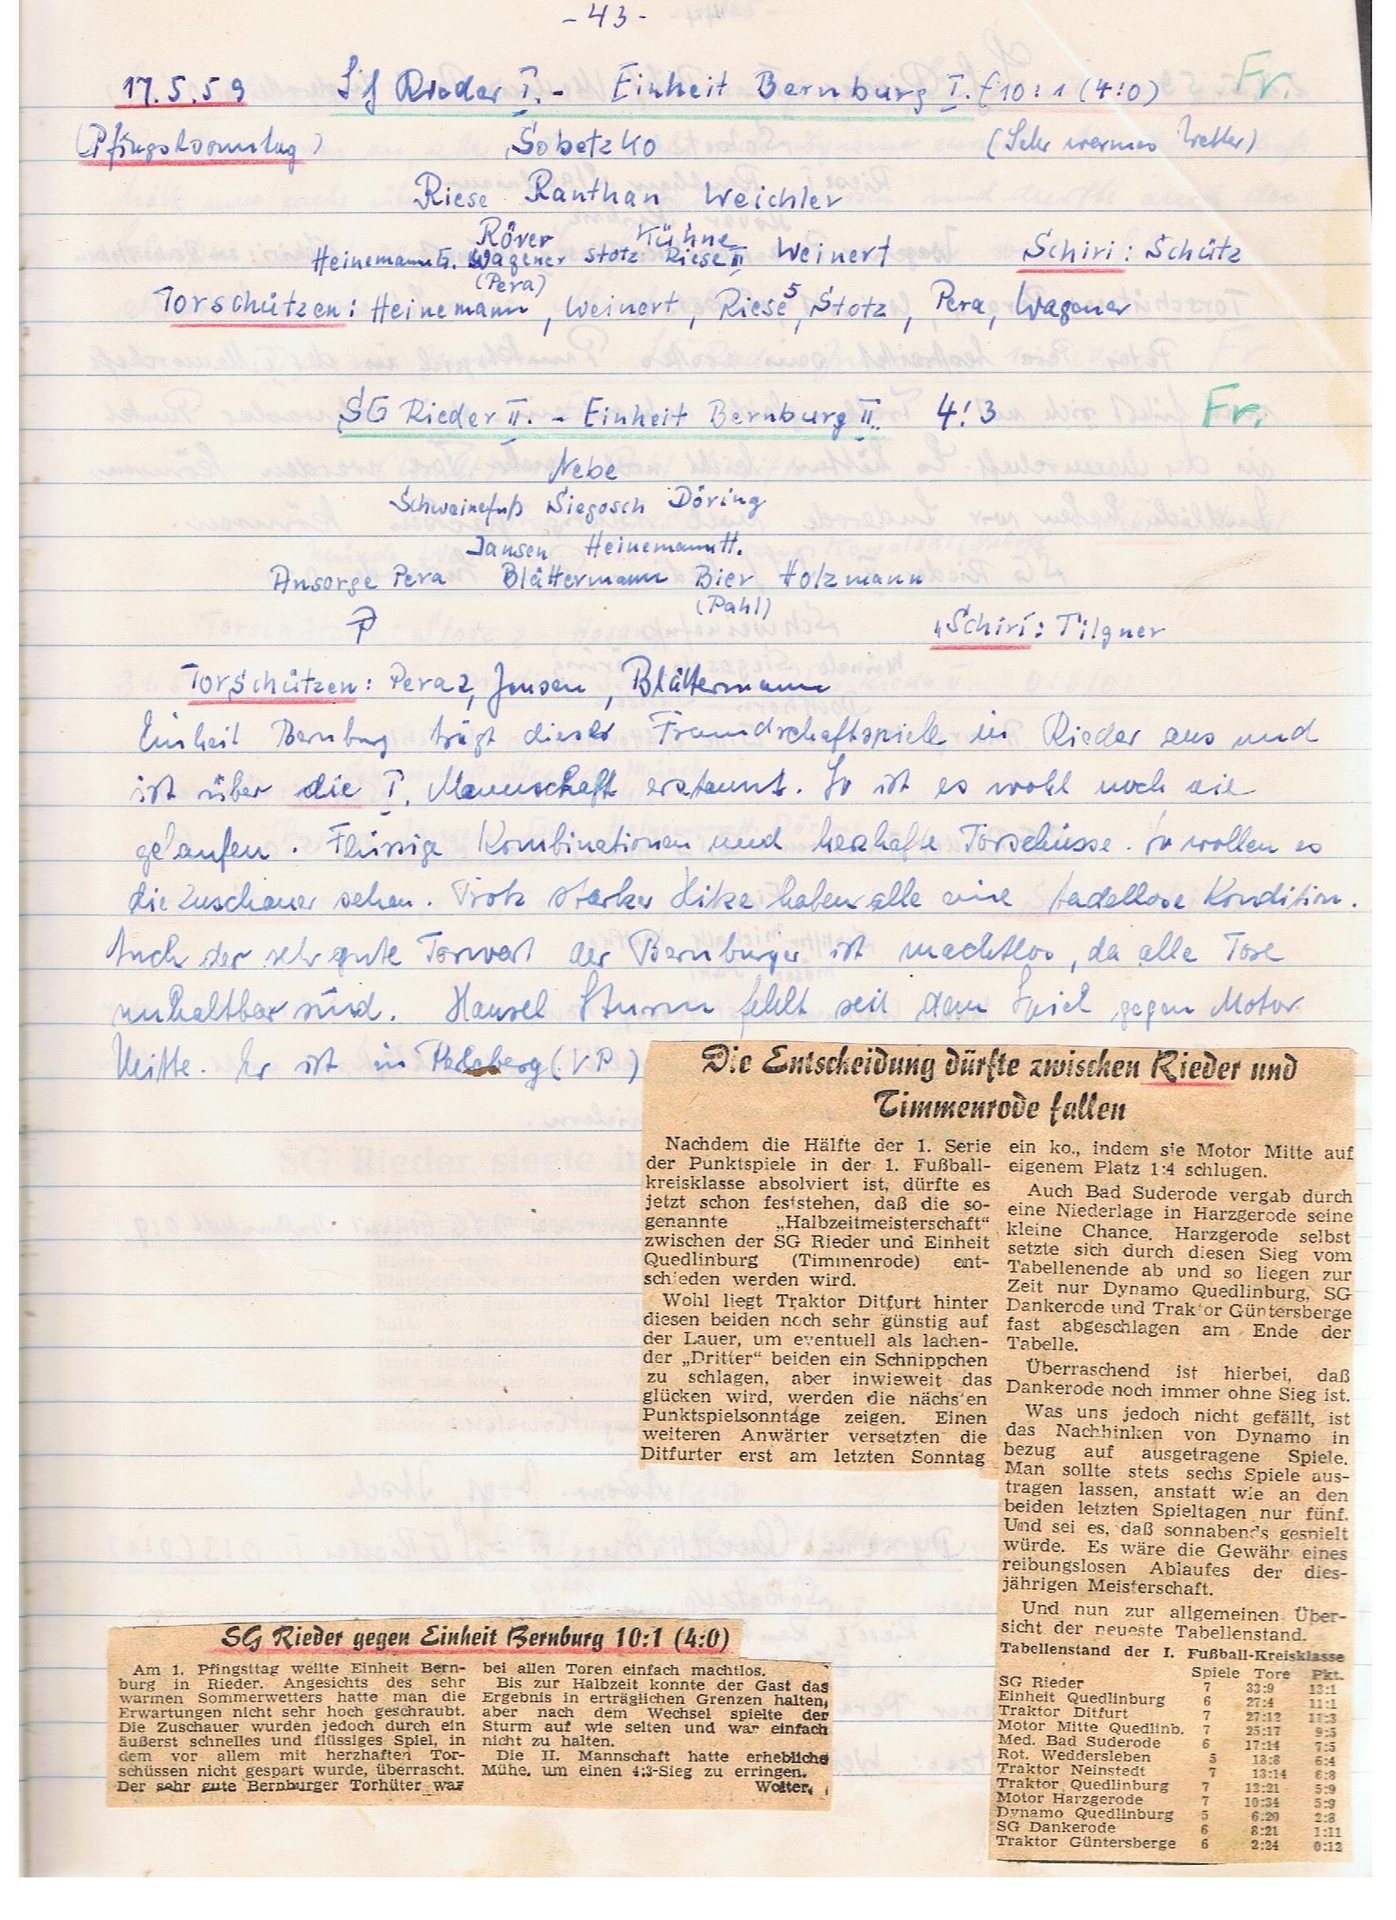 - 43 -
17.5.59 SG Rieder I. - Einheit Bernburg I. 10:1 (4:0) Fr.
(Pfingstsonntag) Sobetzko (Sehr warmes Wetter)
Riese Ranthan Weichler
Röver Kühne
Heinemann G. Wagener Stotz Riese II Weinert Schiri: Schütz
(Pera)
Torschützen: Heinemann, Weinert, Riese 5, Stotz, Pera, Wagener
SG Rieder II. - Einheit Bernburg II. 4:3 Fr.
Nebe
Schweinefuß Siegosch Döring
Jansen Heinemann H.
Ansorge Pera Blättermann Bier Holzmann
(Pahl)
Schiri: Tilgner
Torschützen: Pera 2, Jensen, Blättermann
Einheit Bernburg trägt dieses Freundschaftsspiele in Rieder aus und
ist über die I. Mannschaft erstaunt. So ist es wohl noch nie
gelaufen. Flüssige Kombinationen und herzhafte Torschüsse. So wollen es
die Zuschauer sehen. Trotz starker Hitze haben alle eine tadellose Kondition.
Auch der sehr gute Torwart der Bernburger ist machtlos, da alle Tore
unhaltbar sind. Hansel Sturm fehlt seit dem Spiel gegen Motor
Mitte. Er ist in (VP)
Die Entscheidung dürfte zwischen Rieder und
Timmenrode fallen
Nachdem die Hälfte der 1. Serie
der Punktspiele in der 1. Fußball-
kreisklasse absolviert ist, dürfte es
jetzt schon feststehen, daß die so-
genannte „Halbzeitmeisterschaft“
zwischen der SG Rieder und Einheit
Quedlinburg (Timmenrode) ent-
schieden werden wird.
Wohl liegt Traktor Ditfurt hinter
diesen beiden noch sehr günstig auf
der Lauer, um eventuell als lachen-
der „Dritter“ beiden ein Schnippchen
zu schlagen, aber inwieweit das
glücken wird, werden die nächsten
Punktspielsonntage zeigen. Einen
weiteren Anwärter versetzten die
Ditfurter erst am letzten Sonntag
ein ko., indem sie Motor Mitte auf
eigenem Platz 1:4 schlugen.
Auch Bad Suderode vergab durch
eine Niederlage in Harzgerode seine
kleine Chance. Harzgerode selbst
setzte sich durch diesen Sieg vom
Tabellenende ab und so liegen zur
Zeit nur Dynamo Quedlinburg, SG
Dankerode und Traktor Güntersberge
fast abgeschlagen am Ende der
Tabelle.
Überraschend ist hierbei, daß
Dankerode noch immer ohne Sieg ist.
Was uns jedoch nicht gefällt, ist
das Nachhinken von Dynamo in
bezug auf ausgetragene Spiele.
Man sollte stets sechs Spiele aus-
tragen lassen, anstatt wie an den
beiden letzten Spieltagen nur fünf.
Und sei es, daß sonnabends gespielt
würde. Es wäre die Gewähr eines
reibungslosen Ablaufes der dies-
jährigen Meisterschaft.
Und nun zur allgemeinen Über-
sicht der neueste Tabellenstand.
Tabellenstand der I. Fußball-Kreisklasse
Spiele Tore Pkt.
SG Rieder 7 33:9 13:1
Einheit Quedlinburg 6 27:4 11:1
Traktor Ditfurt 7 27:12 11:3
Motor Mitte Quedlinb. 7 25:17 9:5
Med. Bad Suderode 6 17:14 7:5
Rot. Weddersleben 5 18:8 6:4
Traktor Neinstedt 7 13:14 6:8
Traktor Quedlinburg 7 13:21 5:9
Motor Harzgerode 7 10:34 5:9
Dynamo Quedlinburg 5 6:20 2:8
SG Dankerode 6 8:21 1:11
Traktor Güntersberge 6 2:24 0:12
SG Rieder gegen Einheit Bernburg 10:1 (4:0)
Am 1. Pfingsttag weilte Einheit Bern-
burg in Rieder. Angesichts des sehr
warmen Sommerwetters hatte man die
Erwartungen nicht sehr hoch geschraubt.
Die Zuschauer wurden jedoch durch ein
äußerst schnelles und flüssiges Spiel, in
dem vor allem mit herzhaften Tor-
schüssen nicht gespart wurde, überrascht.
Der sehr gute Bernburger Torhüter war
bei allen Toren einfach machtlos.
Bis zur Halbzeit konnte der Gast das
Ergebnis in erträglichen Grenzen halten,
aber nach dem Wechsel spielte der
Sturm auf wie selten und war einfach
nicht zu halten.
Die II. Mannschaft hatte erhebliche
Mühe, um einen 4:3-Sieg zu erringen.
Wolter.